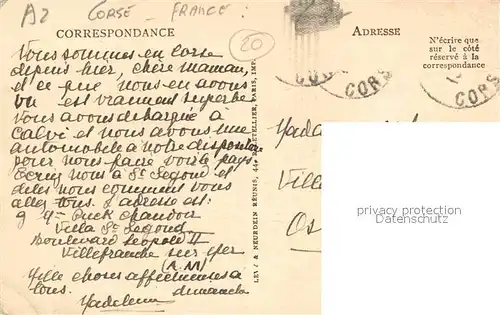 A2 CORSE - FRANCE :
CORRESPONDANCE
20
ADRESSE
N'écrire que
sur le côté
réservé à la
correspondance
Nous sommes en Corse
depuis hier, chère maman,
et ce que nous en avons
vu est vraiment superbe
Nous avons débarqué à
Calvi et nous avons une
automobile à notre disposition
pour nous faire voir le pays
Ecrivez nous à St Segond et
dites nous comment vous
allez tous. L'adresse est:
Villa St Segond
Boulevard Leopold II
Villefranche sur Mer
(A.M)
Mille choses affectueuses à
tous. Madeleine dimanche
LEVY & NEURDEIN RÉUNIS, 44, R. LETELLIER, PARIS, IMP.
CORS
CORS
Mada
Ville
privacy protection
Datenschutz